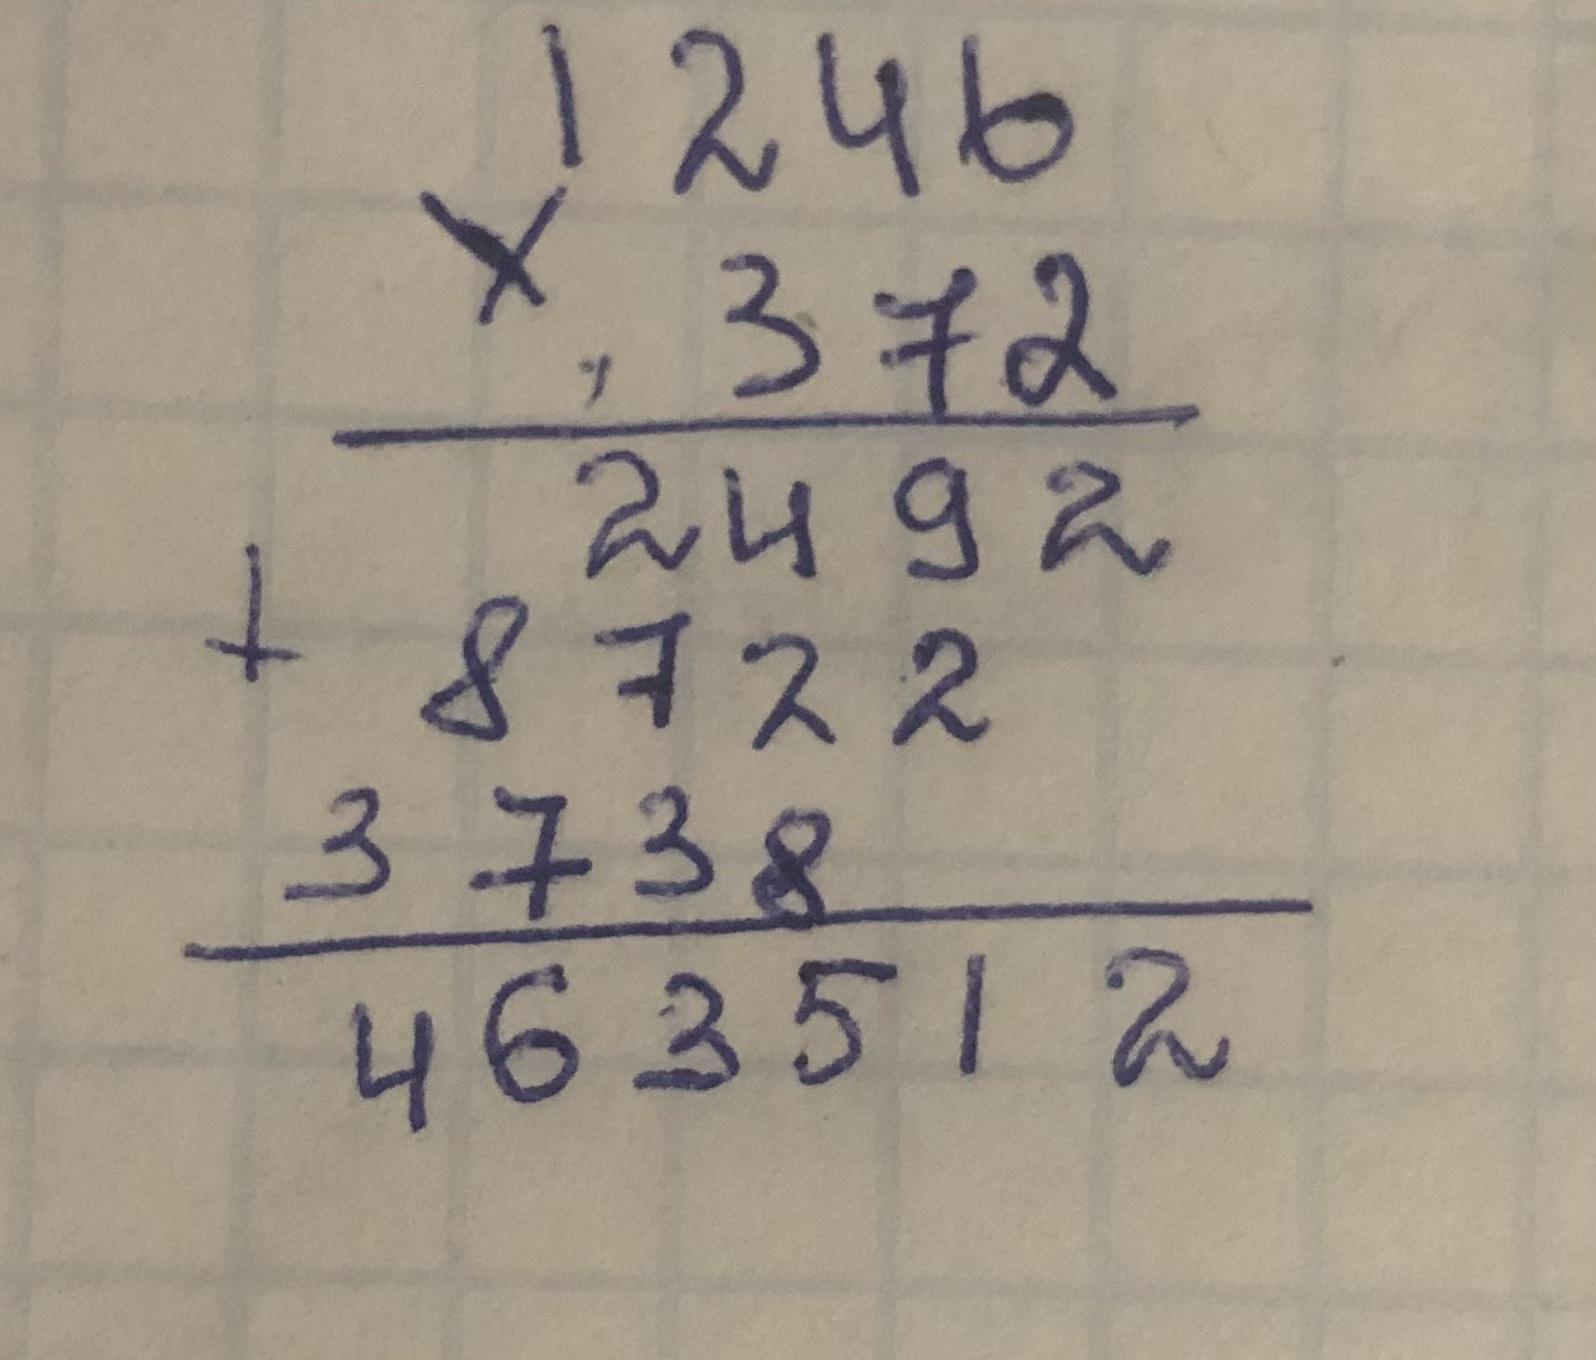 1246
× 372
2492
+ 8722
3738
463512